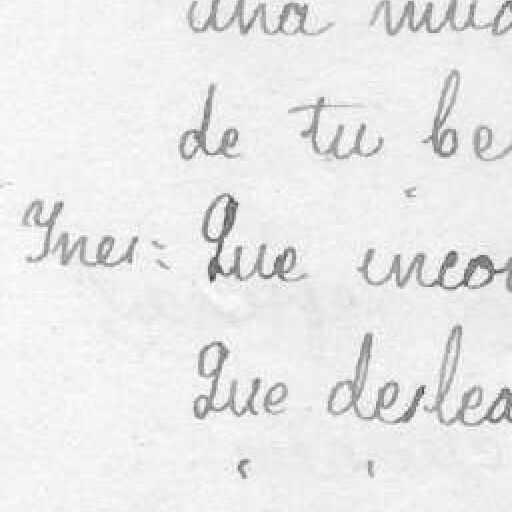 una
de tu be
Ynes: Que inco
Que deslea